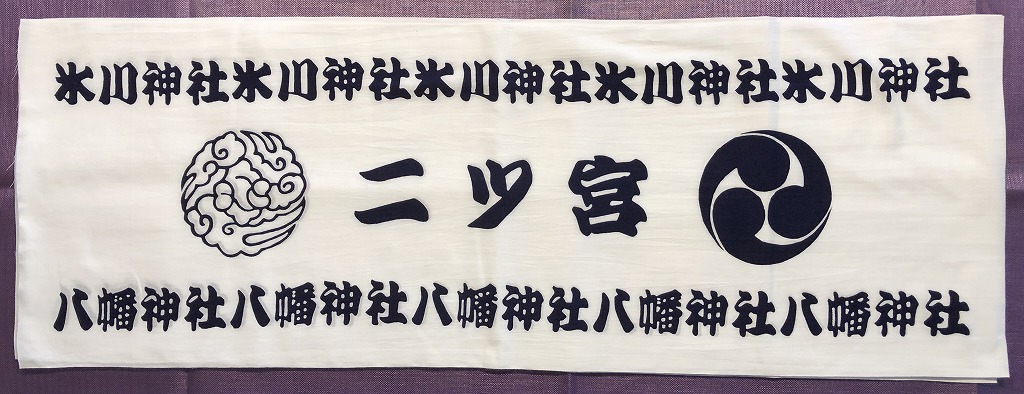 氷川神社氷川神社氷川神社氷川神社氷川神社
二ツ宮
八幡神社八幡神社八幡神社八幡神社八幡神社